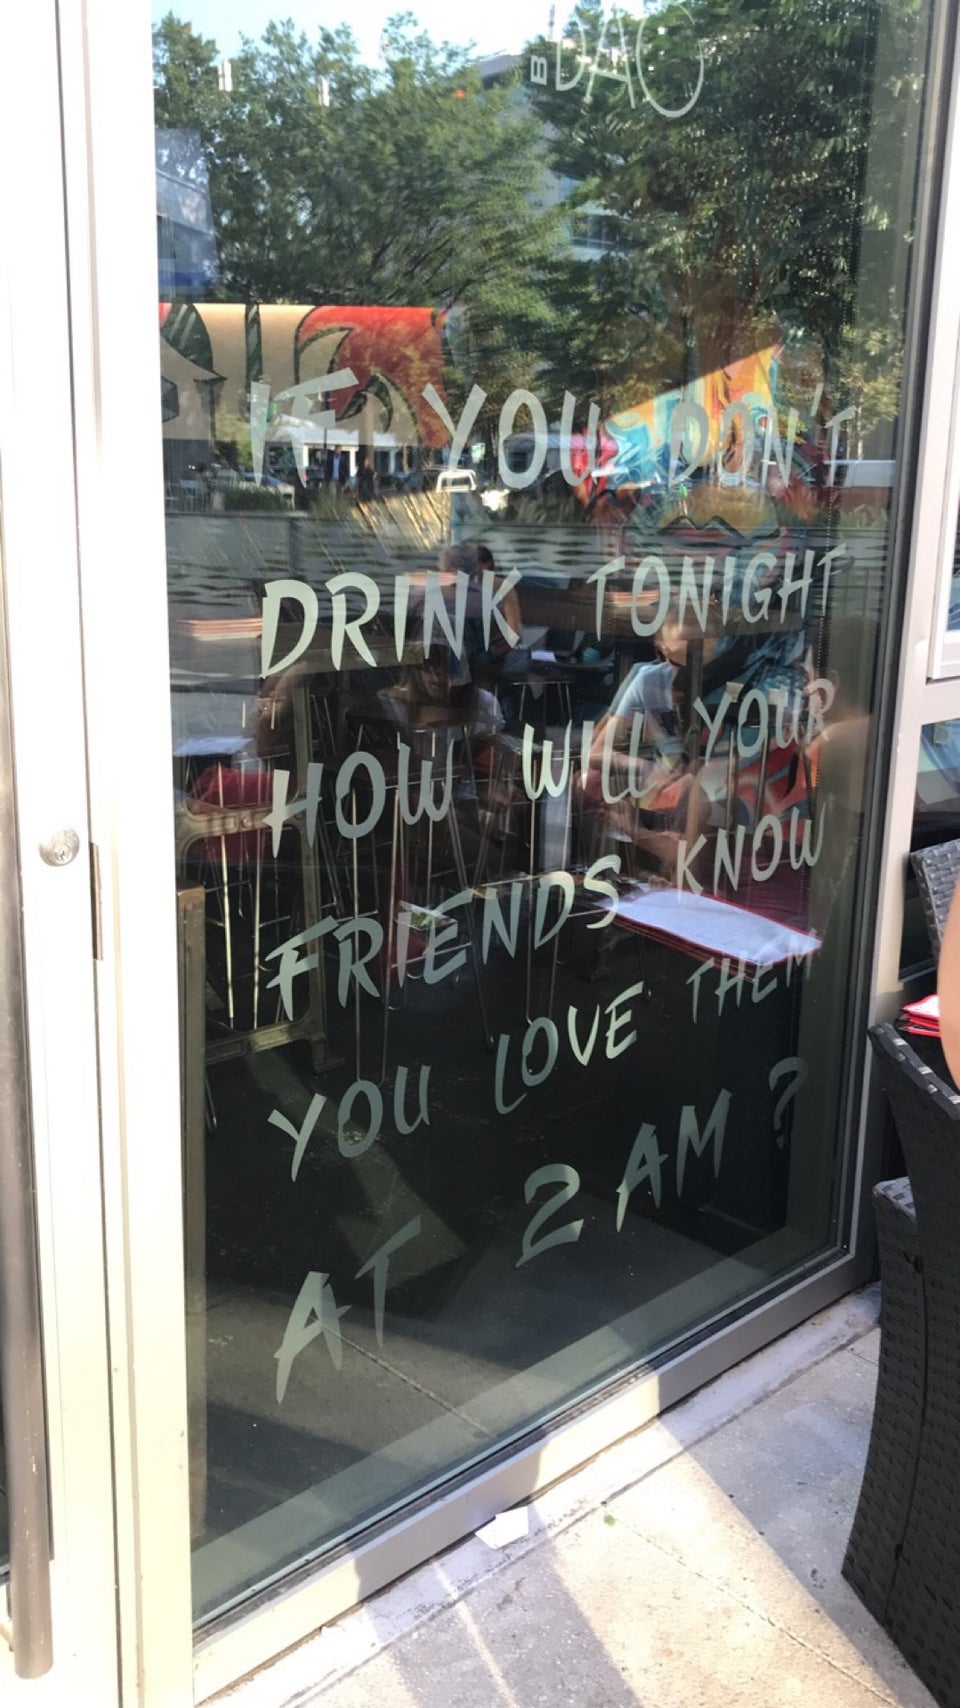 BDAC
IF YOU DON'T
DRINK TONIGHT
HOW WILL YOUR
FRIENDS KNOW
YOU LOVE THEM
AT 2AM?